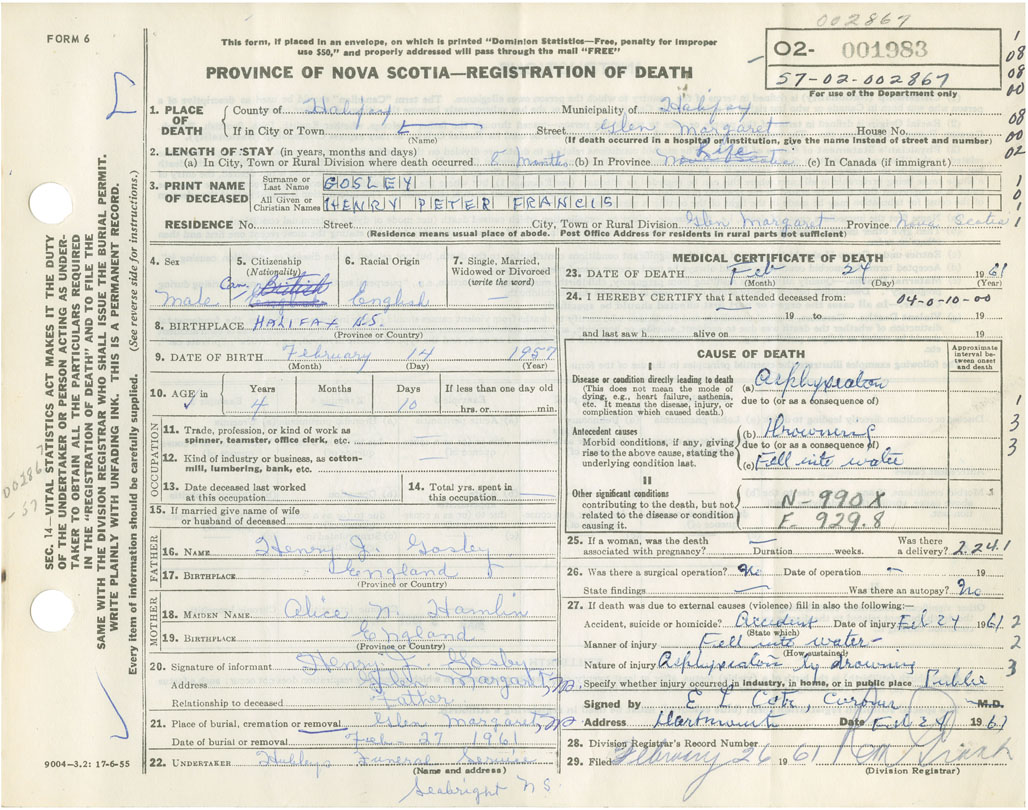 002867
FORM 6
This form, if placed in an envelope, on which is printed "Dominion Statistics—Free, penalty for improper
use $50," and properly addressed will pass through the mail "FREE"
O2- 001983
57-02-002867
For use of the Department only
PROVINCE OF NOVA SCOTIA—REGISTRATION OF DEATH
1. PLACE OF DEATH
County of Halifax Municipality of Halifax
If in City or Town Street Glen Margaret House No.
(Name) (If death occurred in a hospital or institution, give the name instead of street and number)
2. LENGTH OF STAY (in years, months and days)
(a) In City, Town or Rural Division where death occurred 8 months (b) In Province Life Nova Scotia (c) In Canada (if immigrant)
3. PRINT NAME OF DECEASED
Surname or Last Name GOSLEY
All Given or Christian Names HENRY PETER FRANCIS
RESIDENCE No. Street City, Town or Rural Division Glen Margaret Province Nova Scotia
(Residence means usual place of abode. Post Office Address for residents in rural parts not sufficient)
4. Sex male
5. Citizenship (Nationality) Can. British
6. Racial Origin English
7. Single, Married, Widowed or Divorced (write the word) —
8. BIRTHPLACE HALIFAX N.S.
(Province or Country)
9. DATE OF BIRTH February 14 1957
(Month) (Day) (Year)
10. AGE in Years 4 Months — Days 10 If less than one day old hrs. or min.
OCCUPATION
11. Trade, profession, or kind of work as
spinner, teamster, office clerk, etc. —
12. Kind of industry or business, as cotton-
mill, lumbering, bank, etc. —
13. Date deceased last worked
at this occupation —
14. Total yrs. spent in
this occupation —
15. If married give name of wife
or husband of deceased —
FATHER
16. NAME Henry J. Gosley
17. BIRTHPLACE England
(Province or Country)
MOTHER
18. MAIDEN NAME Alice M. Hamlin
19. BIRTHPLACE England
(Province or Country)
20. Signature of informant Henry J. Gosley
Address Glen Margaret,
Relationship to deceased Father
21. Place of burial, cremation or removal Glen Margaret,
Date of burial or removal Feb - 27 1961
22. UNDERTAKER Hubleys Funeral Service
(Name and address)
Seabright N.S.
MEDICAL CERTIFICATE OF DEATH
23. DATE OF DEATH Feb 24 1961
(Month) (Day) (Year)
24. I HEREBY CERTIFY that I attended deceased from: 04-0-10-00
— 19 to 19
and last saw h alive on 19
CAUSE OF DEATH
Approximate interval between onset and death
I
Disease or condition directly leading to death
(This does not mean the mode of
dying, e.g., heart failure, asthenia,
etc. It means the disease, injury, or
complication which caused death.)
(a) Asphyxiation
due to (or as a consequence of)
Antecedent causes
Morbid conditions, if any, giving
rise to the above cause, stating the
underlying condition last.
(b) Drowning
due to (or as a consequence of)
(c) Fell into water
II
Other significant conditions
contributing to the death, but not
related to the disease or condition
causing it.
N-990X
E 929.8
25. If a woman, was the death
associated with pregnancy? — Duration weeks. Was there a delivery? 2.241
26. Was there a surgical operation? No Date of operation — 19
State findings — Was there an autopsy? No
27. If death was due to external causes (violence) fill in also the following:—
Accident, suicide or homicide? Accident Date of injury Feb 24 1961
(State which)
Manner of injury Fell into water
(How sustained)
Nature of injury Asphyxiation by drowning
Specify whether injury occurred in industry, in home, or in public place Public
Signed by E L Cote, Coroner M.D.
Address Dartmouth Date Feb 24 1961
28. Division Registrar's Record Number
29. Filed February 26 1961
(Division Registrar)
SEC. 14—VITAL STATISTICS ACT MAKES IT THE DUTY
OF THE UNDERTAKER OR PERSON ACTING AS UNDER-
TAKER TO OBTAIN ALL THE PARTICULARS REQUIRED
IN THE "REGISTRATION OF DEATH" AND TO FILE THE
SAME WITH THE DIVISION REGISTRAR WHO SHALL ISSUE THE BURIAL PERMIT.
WRITE PLAINLY WITH UNFADING INK. THIS IS A PERMANENT RECORD.
Every item of information should be carefully supplied. (See reverse side for instructions.)
002867
-57
9004—3.2: 17-6-55
1
08
08
00
08
00
02
1
0
1
1
1
3
3
2
2
3